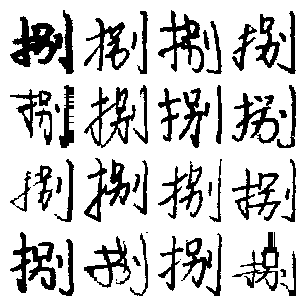 捌捌捌捌
捌捌捌捌
捌捌捌捌
捌捌捌捌